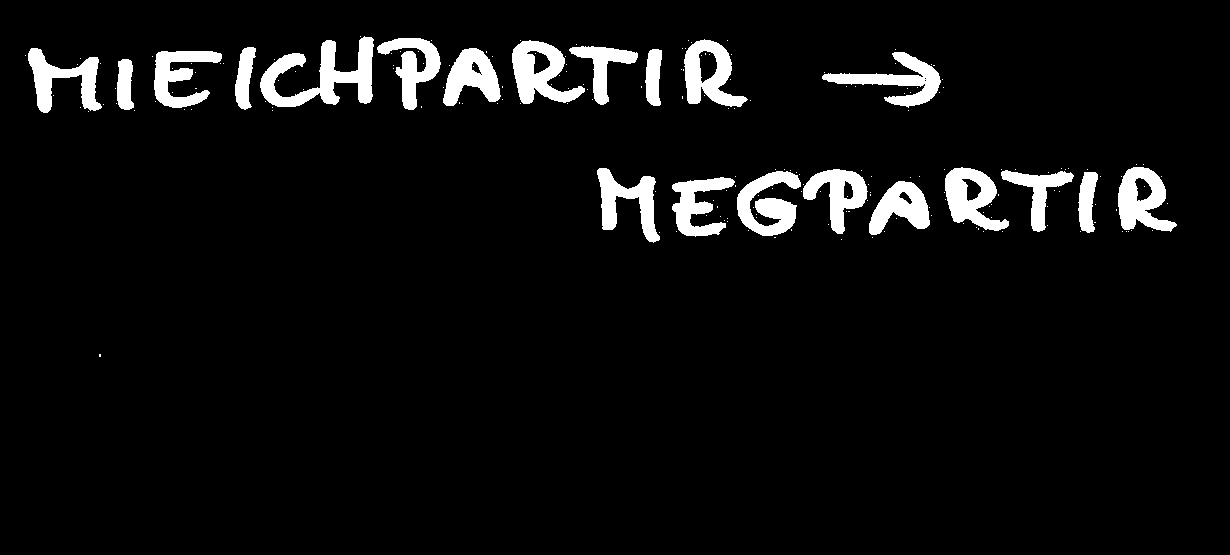 MIEICHPARTIR →
MEGPARTIR